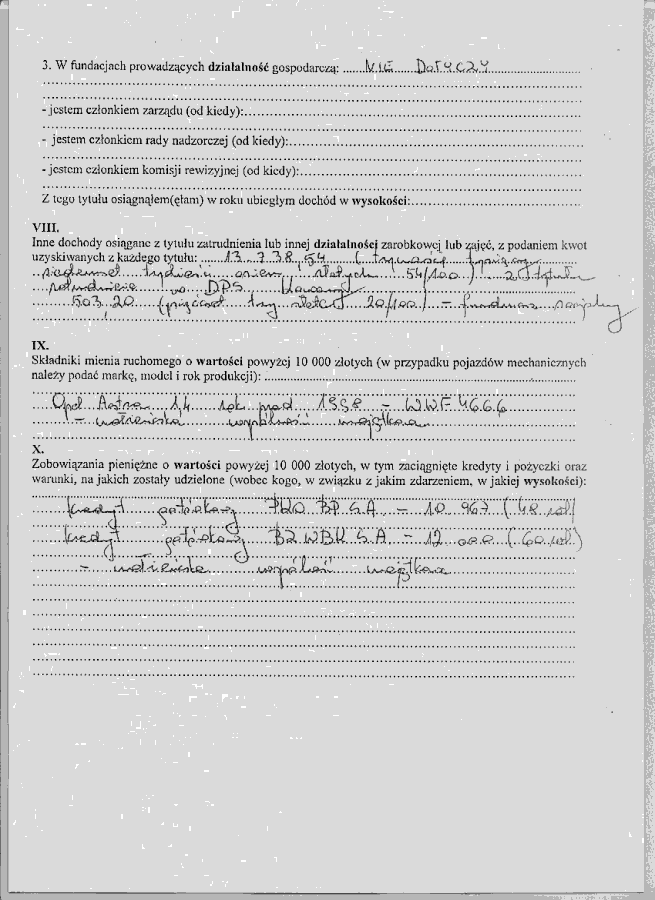 3. W fundacjach prowadzących działalność gospodarczą: ......NIE DOTYCZY
- jestem członkiem zarządu (od kiedy):
- jestem członkiem rady nadzorczej (od kiedy):
- jestem członkiem komisji rewizyjnej (od kiedy):
Z tego tytułu osiągnąłem(ęłam) w roku ubiegłym dochód w wysokości:
VIII.
Inne dochody osiągane z tytułu zatrudnienia lub innej działalności zarobkowej lub zajęć, z podaniem kwot
uzyskiwanych z każdego tytułu: 13.738,54 (trzynaście tysięcy
siedemset trzydzieści osiem złotych 54/100) z tytułu
zatrudnienia w DPS
503,20 (pięćset trzy złote 20/100) – fundusz socjalny
IX.
Składniki mienia ruchomego o wartości powyżej 10 000 złotych (w przypadku pojazdów mechanicznych
należy podać markę, model i rok produkcji):
Opel Astra 1,4 rok prod. 1998 – WWF 4666
– małżeńska wspólność majątkowa
X.
Zobowiązania pieniężne o wartości powyżej 10 000 złotych, w tym zaciągnięte kredyty i pożyczki oraz
warunki, na jakich zostały udzielone (wobec kogo, w związku z jakim zdarzeniem, w jakiej wysokości):
kredyt gotówkowy PKO BP S.A – 10 967 (48 rat)
kredyt gotówkowy BZ WBK S.A – 12 000 (60 rat)
– małżeńska wspólność majątkowa